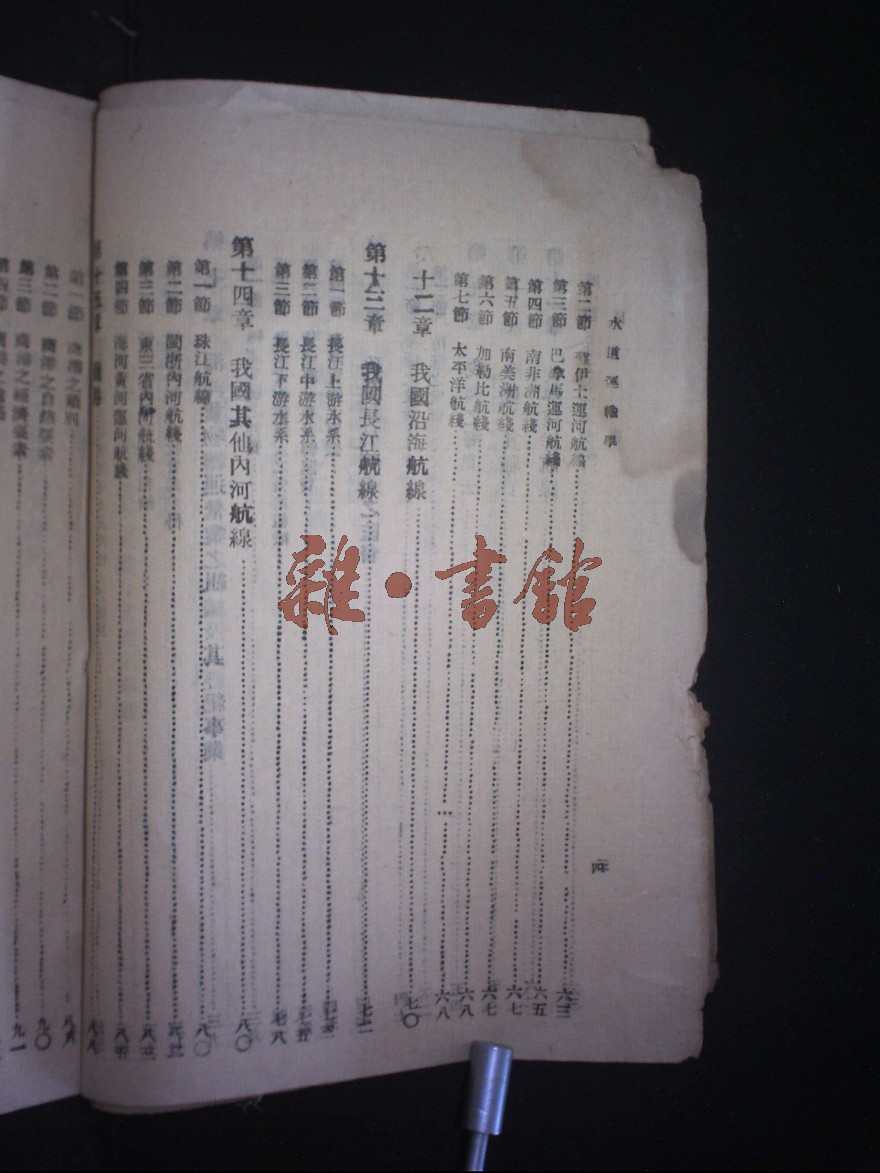 水道運輸學
四
第二節 蘇伊士運河航線 六三
第三節 巴拿馬運河航線
第四節 南非洲航綫 六五
第五節 南美洲航綫 六七
第六節 加勒比航綫 六七
第七節 太平洋航綫 六八
十二章 我國沿海航線 七〇
第十三章 我國長江航線 七二
第一節 長江上游水系
第二節 長江中游水系 七五
第三節 長江下游水系 七八
第十四章 我國其他內河航線 八〇
第一節 珠江航線 八〇
第二節 閩浙內河航綫
第三節 東三省內河航綫 八三
第四節 海河黃河運河航綫 八五
第十五章
第一節
第二節 商港之自然要素 九〇
第三節 商港之經濟要素 九一
第四節
雜·書館